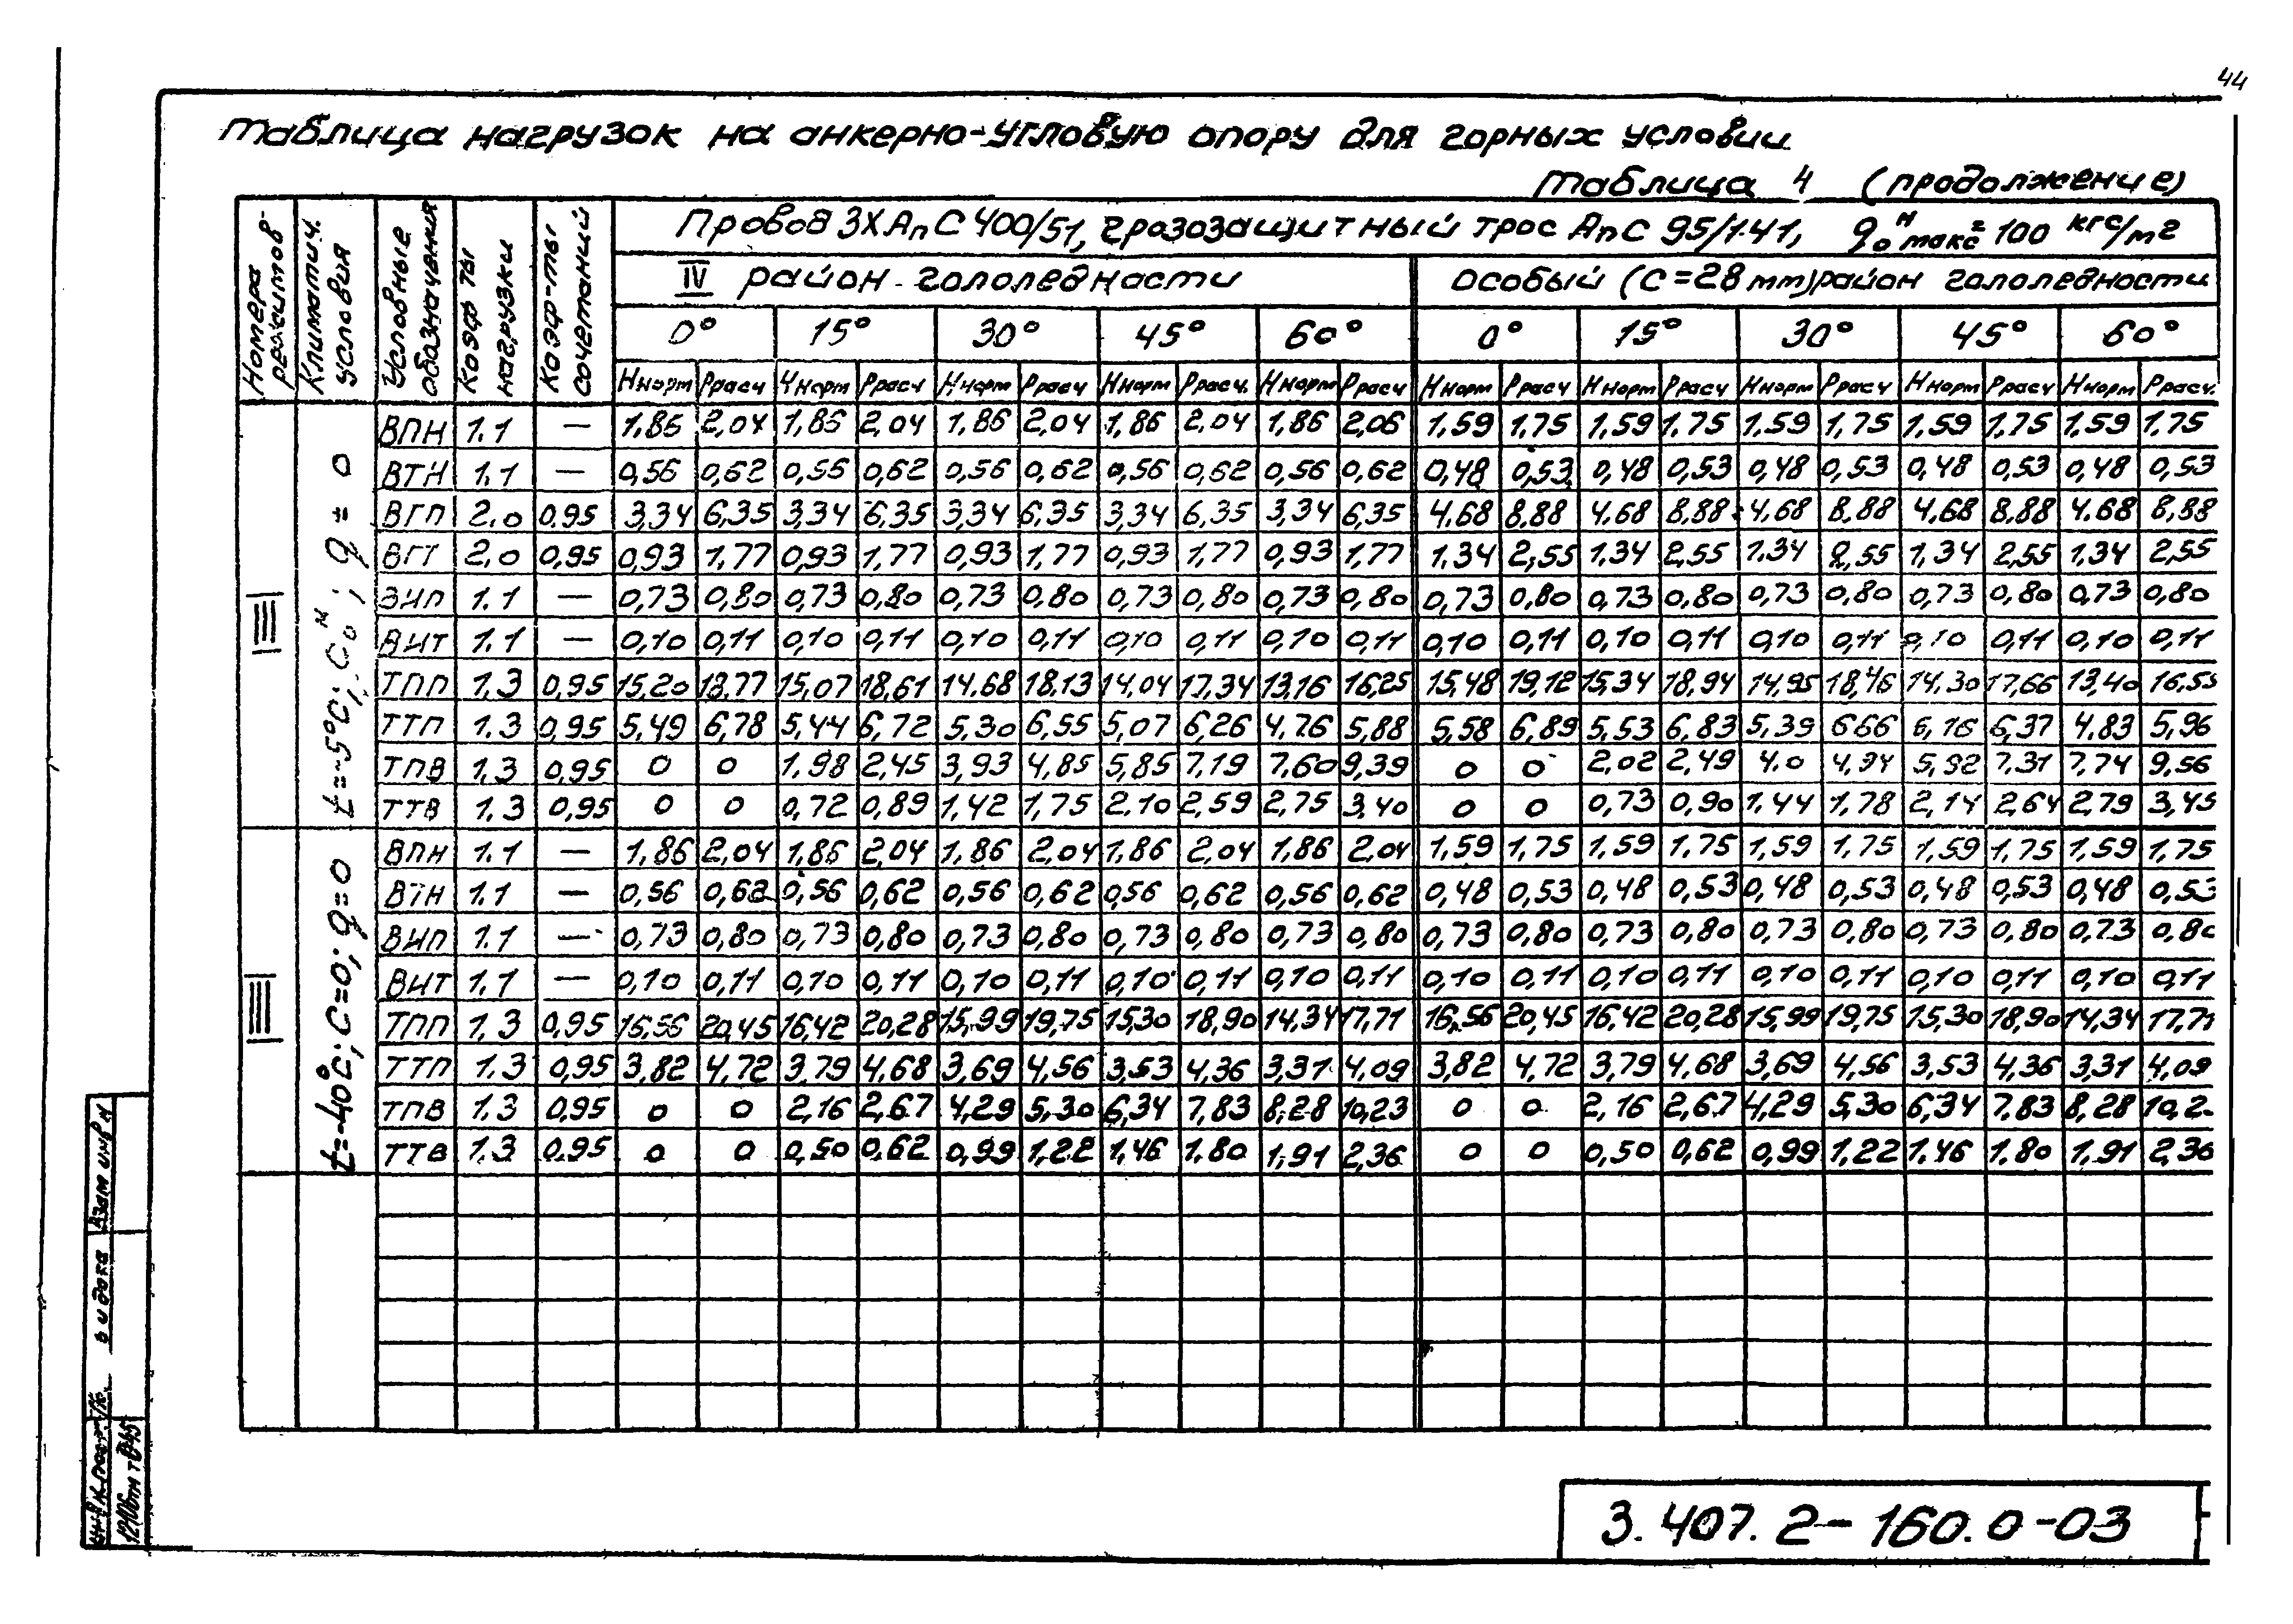 44
Таблица нагрузок на анкерно-угловую опору для горных условии
Таблица 4 (продолжение)
Номера расчитов
Климатич. условия
Условные обозначения
Коэф ты нагрузки
Коэф-ты сочетаний
Провод 3хАпС 400/51, грозозащитный трос АпС 95/141, q₀ᴴмакс = 100 кгс/м2
IV район гололедности Особый (С=28 мм) район гололедности
0° 15° 30° 45° 60° 0° 15° 30° 45° 60°
Ннорм Ррасч Ннорм Ррасч Ннорм Ррасч Ннорм Ррасч. Ннорм Ррасч Ннорм Ррасч Ннорм Ррасч Ннорм Ррасч Ннорм Ррасч Ннорм Ррасч.
III
t=-5°C; C₀ᴴ; q=0
ВПН 1.1 — 1,86 2,04 1,86 2,04 1,86 2,04 1,86 2,04 1,86 2,06 1,59 1,75 1,59 1,75 1,59 1,75 1,59 1,75 1,59 1,75
ВТН 1.1 — 0,56 0,62 0,56 0,62 0,56 0,62 0,56 0,62 0,56 0,62 0,48 0,53 0,48 0,53 0,48 0,53 0,48 0,53 0,48 0,53
ВГП 2.0 0.95 3,34 6,35 3,34 6,35 3,34 6,35 3,34 6,35 3,34 6,35 4.68 8.88 4.68 8.88 4.68 8.88 4.68 8.88 4.68 8,88
ВГТ 2.0 0,95 0,93 1,77 0,93 1,77 0,93 1,77 0,93 1,77 0,93 1,77 1,34 2,55 1,34 2,55 1,34 2,55 1,34 2,55 1,34 2,55
ВИП 1.1 — 0,73 0,80 0,73 0,80 0,73 0,80 0,73 0,80 0,73 0,80 0,73 0,80 0,73 0,80 0,73 0,80 0,73 0,80 0,73 0,80
ВИТ 1.1 — 0,10 0,11 0,10 0,11 0,10 0,11 0,10 0,11 0,10 0,11 0,10 0,11 0,10 0,11 0,10 0,11 0,10 0,11 0,10 0,11
ТПП 1.3 0,95 15,20 18,77 15,07 18,61 14,68 18,13 14,04 17,34 13,16 16,25 15,48 19,12 15,34 18,94 14,95 18,46 14,30 17,66 13,40 16,55
ТТП 1.3 0,95 5,49 6,78 5,44 6,72 5,30 6,55 5,07 6,26 4,76 5,88 5,58 6,89 5,53 6,83 5,39 6,66 6,37 4,83 5,96
ТПВ 1.3 0,95 0 0 1,98 2,45 3,93 4,85 5,85 7,19 7,60 9,39 0 0 2,02 2,49 4,0 4,94 5,92 7,31 7,74 9,56
ТТВ 1.3 0,95 0 0 0,72 0,89 1,42 1,75 2,10 2,59 2,75 3,40 0 0 0,73 0,90 1,44 1,78 2,14 2,64 2,79 3,45
IIII
t=-40°C; C=0; q=0
ВПН 1.1 — 1,86 2,04 1,86 2,04 1,86 2,04 1,86 2,04 1,86 2,04 1,59 1,75 1,59 1,75 1,59 1,75 1,59 1,75 1,59 1,75
ВТН 1.1 — 0,56 0,62 0,56 0,62 0,56 0,62 0,56 0,62 0,56 0,62 0,48 0,53 0,48 0,53 0,48 0,53 0,48 0,53 0,48 0,53
ВИП 1.1 — 0,73 0,80 0,73 0,80 0,73 0,80 0,73 0,80 0,73 0,80 0,73 0,80 0,73 0,80 0,73 0,80 0,73 0,80 0,73 0,80
ВИТ 1.1 — 0,10 0,11 0,10 0,11 0,10 0,11 0,10 0,11 0,10 0,11 0,10 0,11 0,10 0,11 0,10 0,11 0,10 0,11 0,10 0,11
ТПП 1.3 0,95 16,56 20,45 16,42 20,28 15,99 19,75 15,30 18,90 14,34 17,71 16,56 20,45 16,42 20,28 15,99 19,75 15,30 18,90 14,34 17,71
ТТП 1.3 0,95 3,82 4,72 3,79 4,68 3,69 4,56 3,53 4,36 3,31 4,09 3,82 4,72 3,79 4,68 3,69 4,56 3,53 4,36 3,31 4,09
ТПВ 1.3 0,95 0 0 2,16 2,67 4,29 5,30 6,34 7,83 8,28 10,23 0 0 2,16 2,67 4,29 5,30 6,34 7,83 8,28 10,2
ТТВ 1.3 0.95 0 0 0,50 0,62 0,99 1,22 1,46 1,80 1,91 2,36 0 0 0,50 0,62 0,99 1,22 1,46 1.80 1,91 2,36
Взам инв н
3.407.2-160.0-03